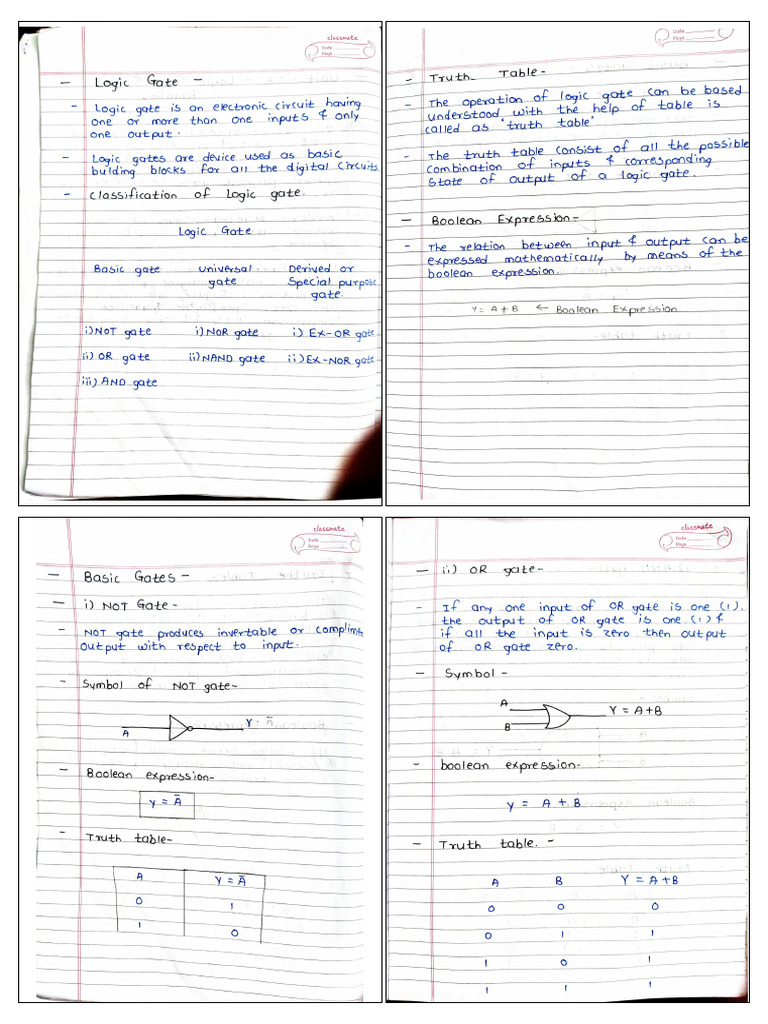 classmate
Date
Page
- Logic Gate -
- Logic gate is an electronic circuit having
one or more than one inputs & only
one output.
- Logic gates are device used as basic
bulding blocks for all the digital circuits
- Classification of logic gate.
Logic Gate
Basic gate universal gate Derived or Special purpose gate.
i) NOT gate i) NOR gate i) EX-OR gate
ii) OR gate ii) NAND gate ii) EX-NOR gate
iii) AND gate
Date
Page
- Truth Table -
- The operation of logic gate can be based
understood with the help of table is
called as 'truth table'
- The truth table consist of all the possible
combination of inputs & corresponding
state of output of a logic gate.
- Boolean Expression -
- The relation between input & output can be
expressed mathematically by means of the
boolean expression.
Y = A + B ← Boolean Expression
classmate
Date
Page
- Basic Gates -
- i) NOT Gate -
- NOT gate produces invertable or complim
output with respect to input.
- Symbol of NOT gate -
A Y = A̅
- Boolean expression -
Y = A̅
- Truth table -
A Y = A̅
0 1
1 0
classmate
Date
Page
- ii) OR gate -
- If any one input of OR gate is one (1).
the output of OR gate is one (1) &
if all the input is zero then output
of OR gate zero.
- Symbol -
A
B
Y = A+B
- boolean expression -
y = A + B
- Truth table. -
A B Y = A+B
0 0 0
0 1 1
1 0 1
1 1 1